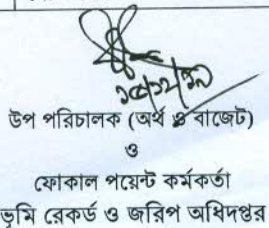 উপ পরিচালক (অর্থ ও বাজেট)
ও
ফোকাল পয়েন্ট কর্মকর্তা
ভূমি রেকর্ড ও জরিপ অধিদপ্তর